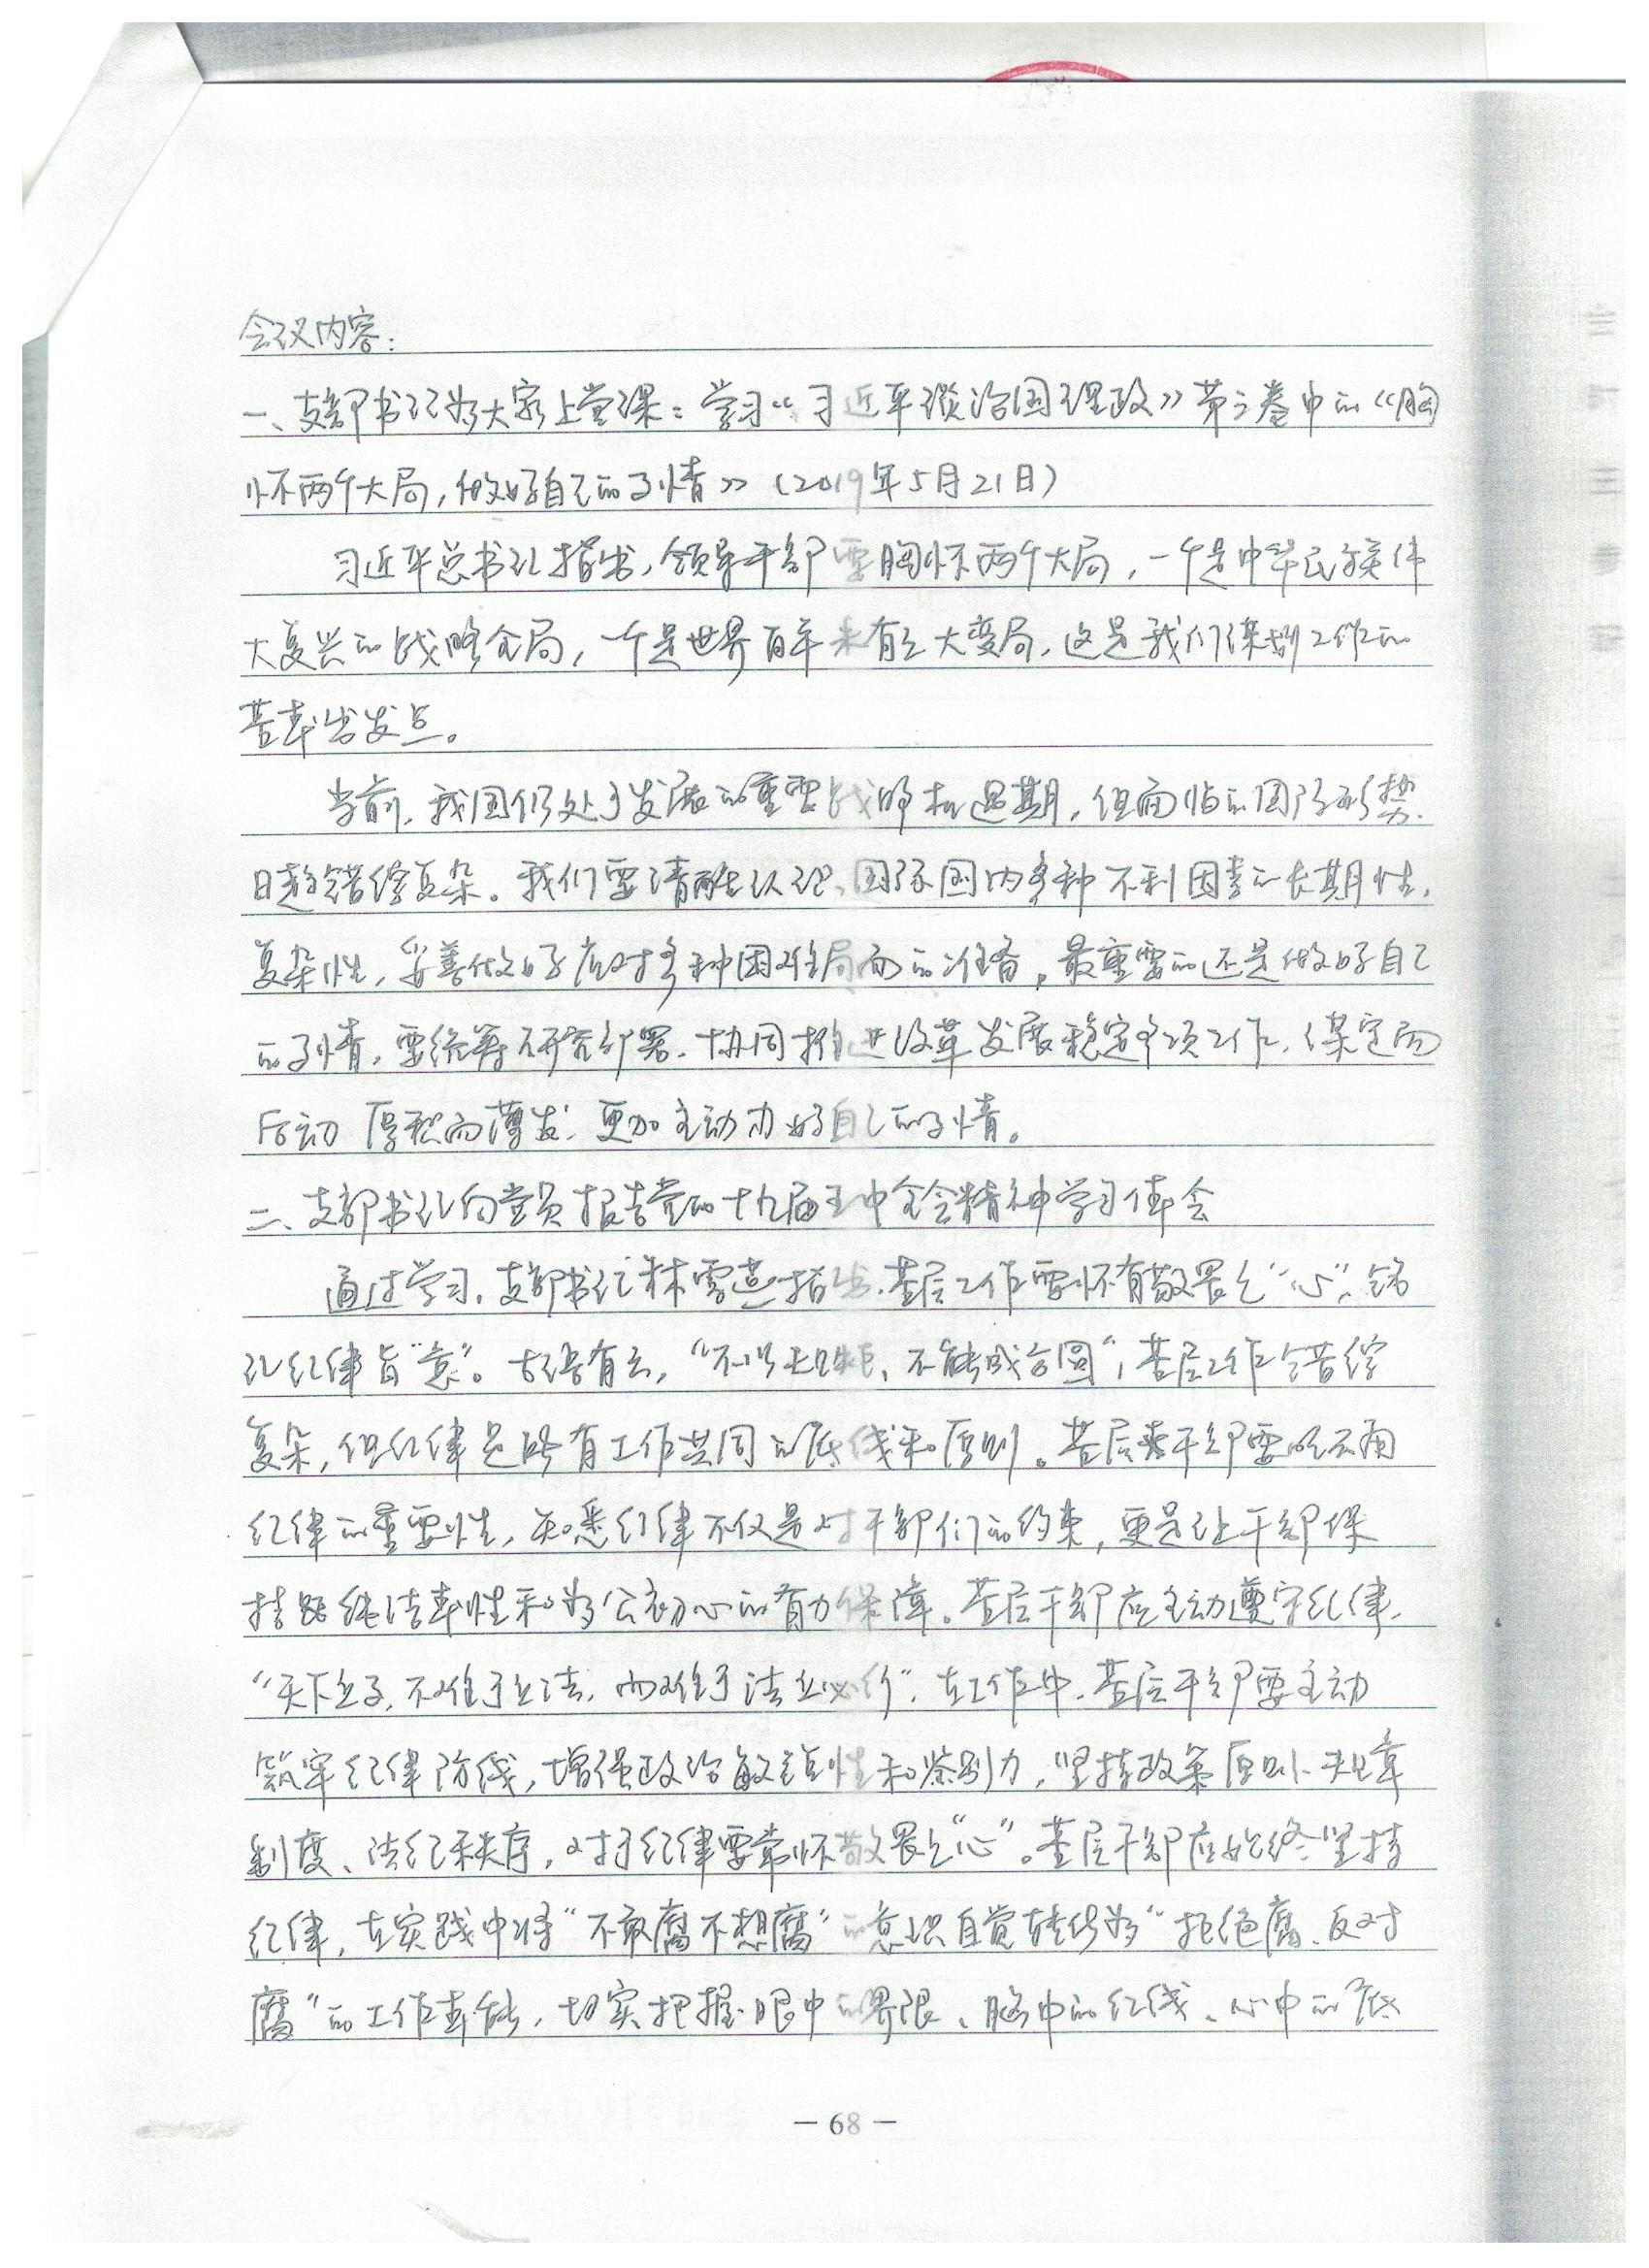 会议内容:
一、支部书记为大家上堂课:学习“习近平谈治国理政》第三卷中的《胸
怀两个大局,做好自己的事情》(2019年5月21日)
习近平总书记指出,领导干部要胸怀两个大局,一个是中华民族伟
大复兴的战略全局,一个是世界百年未有之大变局,这是我们谋划工作的
基本出发点。
当前,我国仍处于发展的重要战略机遇期,但面临的国际形势
日趋错综复杂。我们要清醒认识、国际国内多种不利因素的长期性,
复杂性,妥善做好应对多种困难局面的准备,最重要的还是做好自己
的事情,要统筹研究部署,协同推进改革发展稳定各项工作,谋定而
后动 厚积而薄发,更加主动办好自己的事情。
二、支部书记向党员报告党的十九届五中全会精神学习体会
通过学习,支部书记林雪燕指出,基层工作要怀有敬畏之“心”,铭
记纪律旨“意”。古语有云,“不以规矩,不能成方圆”,基层工作错综
复杂,但纪律是所有工作共同的底线和原则。基层干部要明确
纪律的重要性,知悉纪律不仅是对干部们的约束,更是让干部保
持纯洁本性和为公初心的有力保障。基层干部应主动遵守纪律,
“天下之事,不难于立法,而难于法立必行”,在工作中,基层干部要主动
筑牢纪律防线,增强政治敏锐性和鉴别力,坚持政策原则、规章
制度、法纪秩序,对于纪律要常怀敬畏之“心”。基层干部应始终坚持
纪律,在实践中将“不敢腐不想腐”的意识自觉转化为“拒绝腐、反对
腐”的工作本能,切实把握眼中的界限、胸中的红线、心中的底
— 68 —